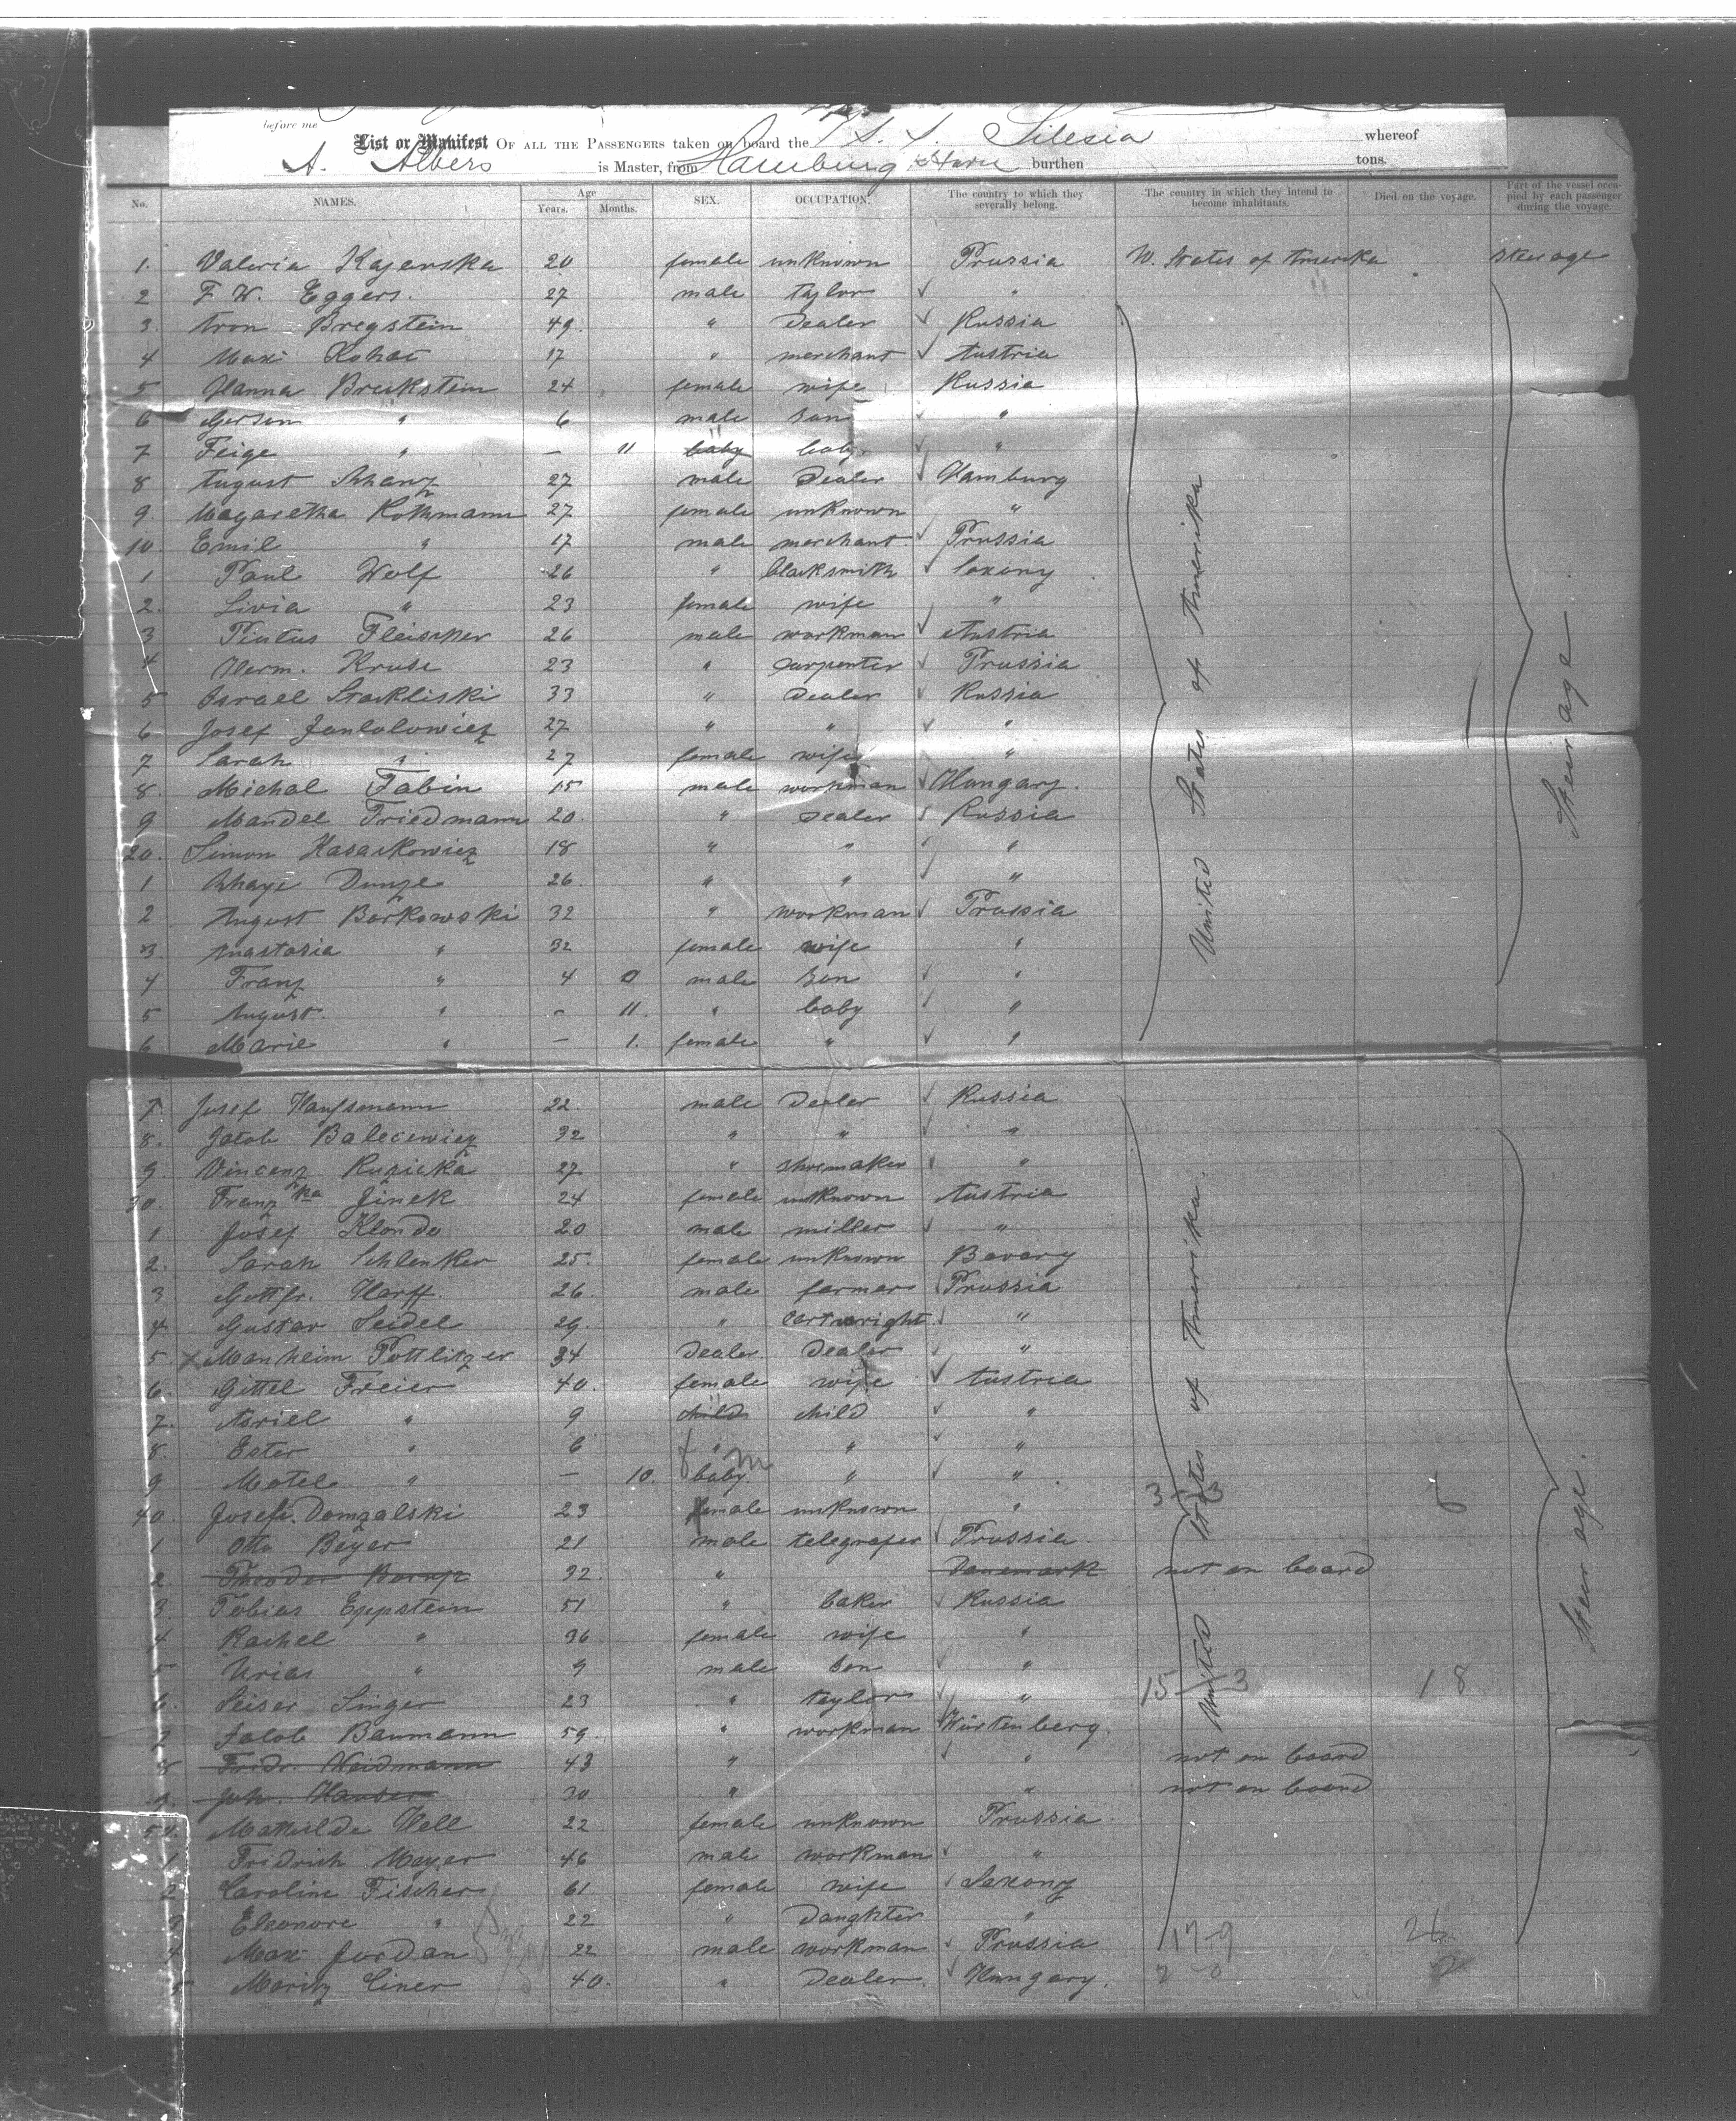 before me
List or Manifest OF ALL THE PASSENGERS taken on board the S. S. Silesia whereof
A. Albers is Master, from Hamburg & Havre burthen tons.
No. NAMES. Age Years. Months. SEX. OCCUPATION. The country to which they severally belong. The country in which they intend to become inhabitants. Died on the voyage. Part of the vessel occupied by each passenger during the voyage.
1. Valeria Kajenska 20 female unknown Prussia U. States of Amerika steerage
2 F. W. Eggers. 27 male taylor ✓ "
3. Aron Bregstein 49. " Dealer ✓ Russia
4 Maxi 17 " merchant ✓ Austria
5 Hanna Breckstein 24 female wife Russia
6 Gerson " 6 male son ✓ "
7 Feige " — 11 baby baby ✓ "
8 August Schanz 27 male Dealer ✓ Hamburg
9. Magaretha Rothmann 27 female unknown "
10. Emil " 17 male merchant ✓ Prussia
1 Paul Wolf 26 " blacksmith ✓ Saxony
2. Livia " 23 female wife "
3 Pintus Fleischer 26 male workman ✓ Austria
4 Herm. Kruse 23 " carpenter ✓ Prussia
5 Israel Stackliski 33 " Dealer ✓ Russia
6 Josef 27 " " ✓ "
7 Sarah " 27 female wife "
8. Michal Fabin 15 male workman ✓ Hungary.
9 Mandel Friedmann 20. " Dealer ✓ Russia
20. Simon Hasackowicz 18 " " ✓ "
1 Schaye Dunze 26. " " ✓ "
2 August Borkowski 32 " workman ✓ Prussia
3. Anastasia " 32 female wife "
4 Franz " 4 0 male son ✓ "
5 August. " - 11. " baby ✓ "
6 Marie " — 1. female " ✓ "
United States of Amerika
Steerage
7. Josef Haufsmann 22. male Dealer ✓ Russia
8. Jacob Balecewicz 32 " " ✓ "
9 Vincenz Ruzicka 27 " shoemaker ✓ "
30. Franzka Jinek 24 female unknown Austria
1 Josef Klondo 20 male miller ✓ "
2. Sarah Schlenker 25. female unknown Bavary
3 Gottfr. Harff. 26. male farmer ✓ Prussia
4. Gustav Seidel 29. " cartwright ✓ "
5. X Manheim Pottlitzer 34 Dealer. Dealer ✓ "
6. Gittel Freier 40. female wife ✓ Austria
7. Asriel " 9 child child ✓ "
8. Ester " 6 f " " ✓ "
9 Motel " — 10. baby m " ✓ "
40. Josefe. Domzalski 23 female unknown " 3-3 6
1 Otto Beyer 21 male telegrafer ✓ Prussia.
2. Theodor 32. " Danemark not on board
3 Tobias Eppstein 51 " baker ✓ Russia
4 Rachel " 36 female wife "
5 Urias " 9 male son ✓ "
6. Leiser Singer 23 " taylor ✓ " 15-3 18
7 Jacob Baumann 59. " workman ✓ Würtenberg.
8 Fridr. Weidmann 43 " ✓ " not on board
9. Joh. Hauser 30 " " not on board
50. Mathilde Hell 22 female unknown Prussia.
1 Fridrich Meyer 46 male workman ✓ "
2 Caroline Fischer 61. female wife ✓ Saxony
3 Eleonore " 22 " daughter "
4 Max Jordan 22 male workman ✓ Prussia 17-9 26
5 Moritz Einer 40. " Dealer. ✓ Hungary. 2-0 2
United States of Amerika.
Steerage.